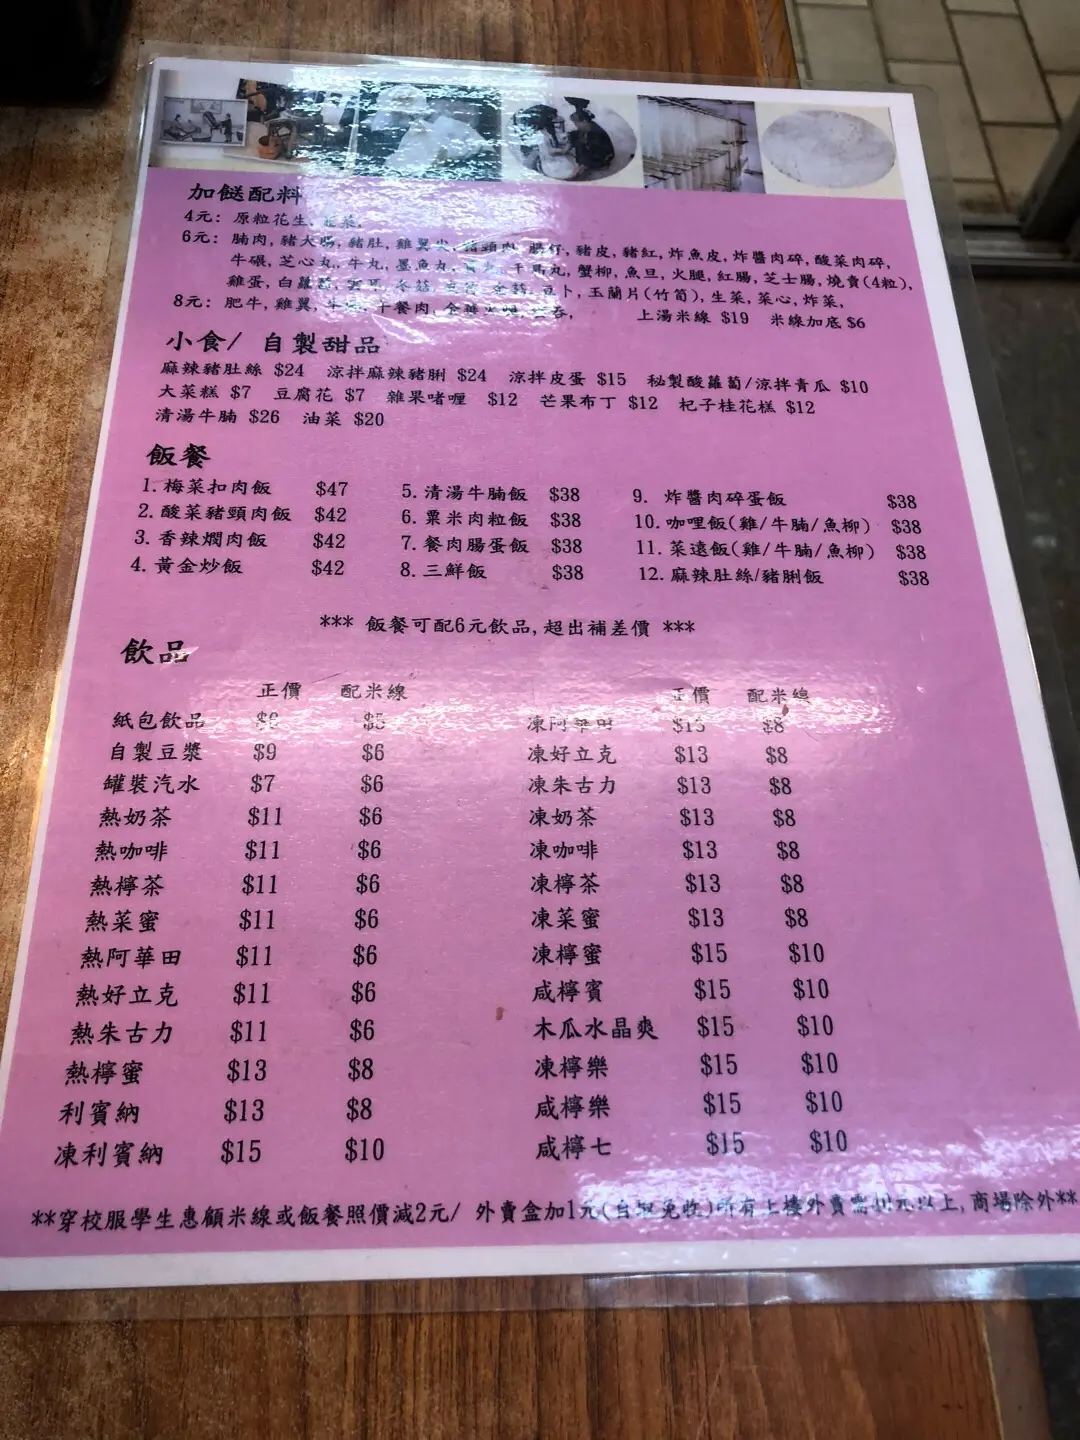 加餸配料
4元: 原粒花生,
6元: 腩肉, 豬大腸, 豬肚, 雞翼尖, 豬頸肉, 腸仔, 豬皮, 豬紅, 炸魚皮, 炸醬肉碎, 酸菜肉碎,
牛𩟔, 芝心丸, 牛丸, 墨魚丸, 蟹柳, 魚旦, 火腿, 紅腸, 芝士腸, 燒賣(4粒),
雞蛋, 白蘿蔔, 豆卜, 玉蘭片(竹筍), 生菜, 菜心, 炸菜,
8元: 肥牛, 雞翼, 午餐肉, 上湯米線 $19 米線加底 $6
小食/ 自製甜品
麻辣豬肚絲 $24 涼拌麻辣豬脷 $24 涼拌皮蛋 $15 秘製酸蘿蔔/涼拌青瓜 $10
大菜糕 $7 豆腐花 $7 雜果啫喱 $12 芒果布丁 $12 杞子桂花糕 $12
清湯牛腩 $26 油菜 $20
飯餐
1. 梅菜扣肉飯 $47 5. 清湯牛腩飯 $38 9. 炸醬肉碎蛋飯 $38
2. 酸菜豬頸肉飯 $42 6. 粟米肉粒飯 $38 10. 咖哩飯(雞/牛腩/魚柳) $38
3. 香辣燜肉飯 $42 7. 餐肉腸蛋飯 $38 11. 菜遠飯(雞/牛腩/魚柳) $38
4. 黃金炒飯 $42 8. 三鮮飯 $38 12. 麻辣肚絲/豬脷飯 $38
*** 飯餐可配6元飲品, 超出補差價 ***
飲品
正價 配米線 正價 配米線
紙包飲品 $6 $5 凍阿華田 $13 $8
自製豆漿 $9 $6 凍好立克 $13 $8
罐裝汽水 $7 $6 凍朱古力 $13 $8
熱奶茶 $11 $6 凍奶茶 $13 $8
熱咖啡 $11 $6 凍咖啡 $13 $8
熱檸茶 $11 $6 凍檸茶 $13 $8
熱菜蜜 $11 $6 凍菜蜜 $13 $8
熱阿華田 $11 $6 凍檸蜜 $15 $10
熱好立克 $11 $6 咸檸賓 $15 $10
熱朱古力 $11 $6 木瓜水晶爽 $15 $10
熱檸蜜 $13 $8 凍檸樂 $15 $10
利賓納 $13 $8 咸檸樂 $15 $10
凍利賓納 $15 $10 咸檸七 $15 $10
**穿校服學生惠顧米線或飯餐照價減2元/ 外賣盒加1元(自攜免收)所有上樓外賣需40元以上, 商場除外**